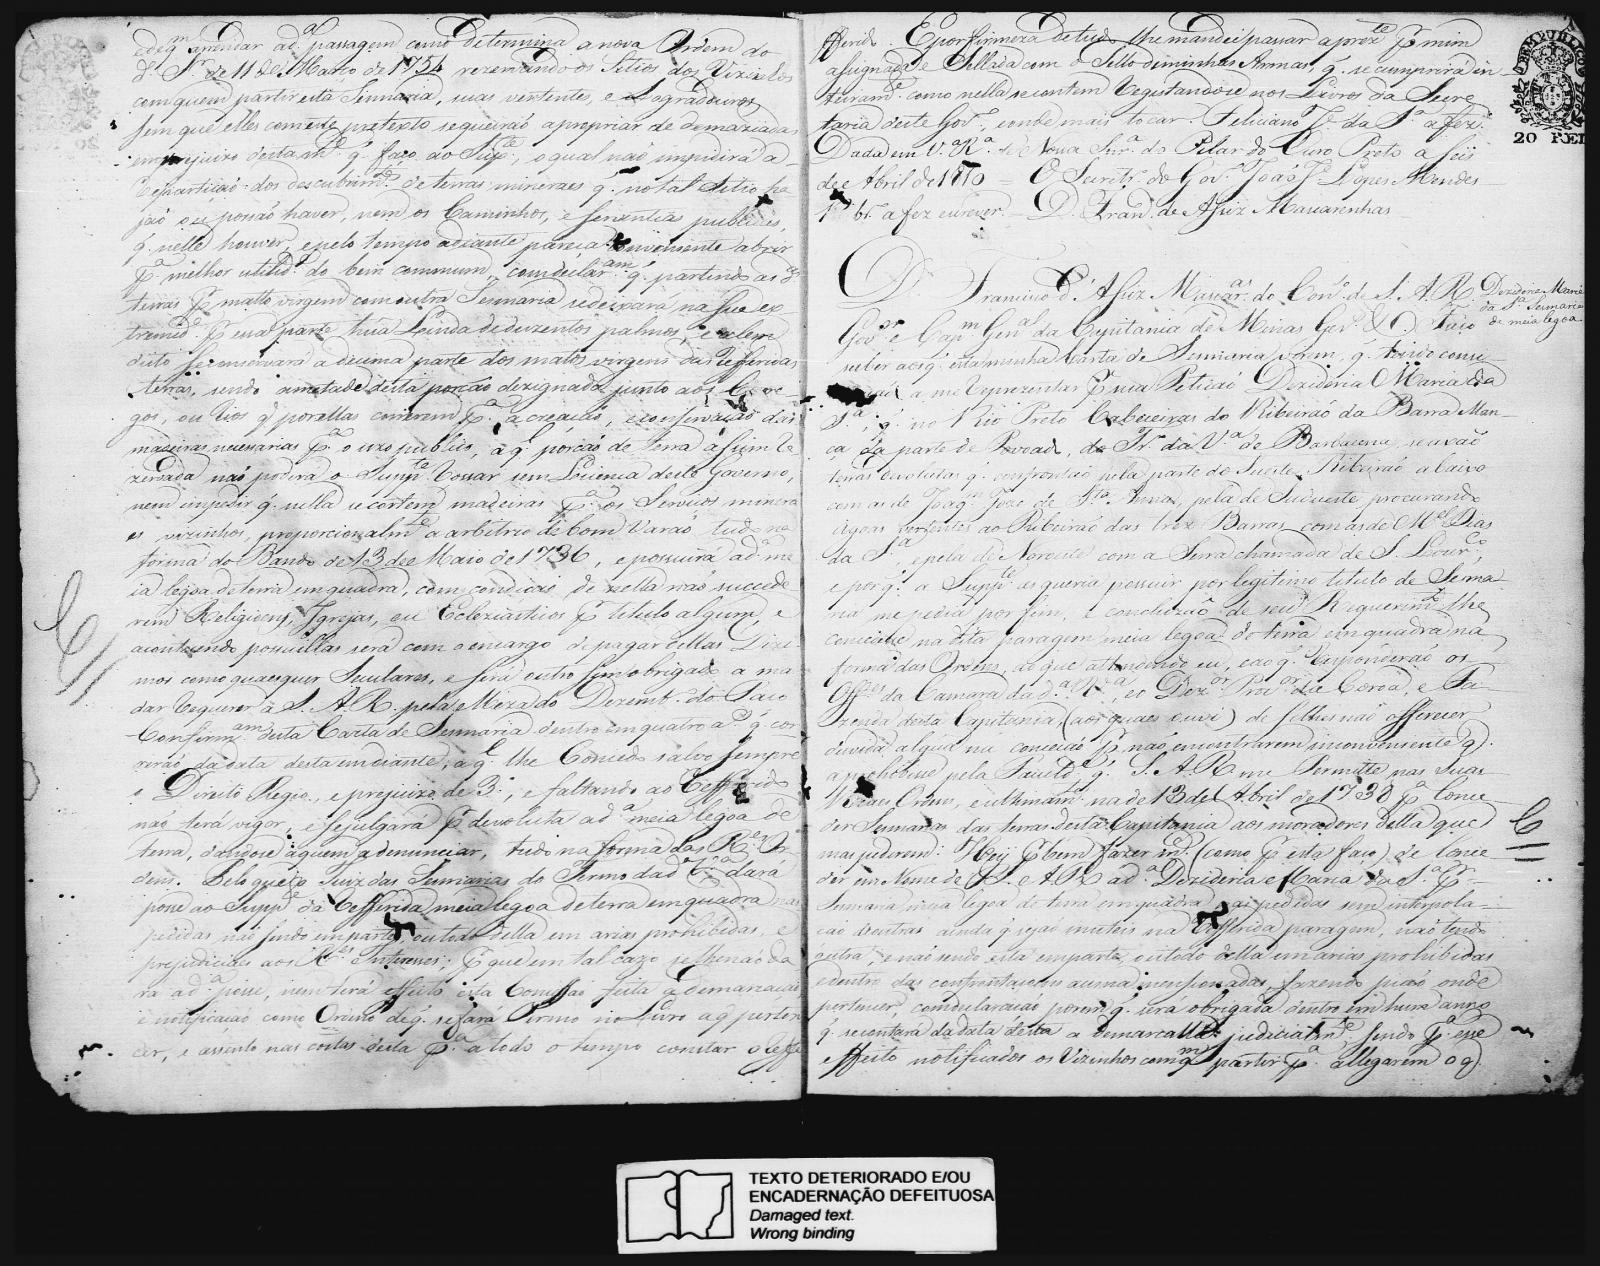 e deq.m arendar ad.a passagem como determina a nova Ordem do
d.o S.r de 11 de Março de 1754 rezervando os sitios dos Vizinhos
com quem partir esta Sesmaria, suas vertentes, e Logradouros
sem que elles com este pretexto se queirão apropriar de demaziadas
em prejuizo desta m.ce q.' faço ao Supp.te, o qual não impidirá a
repartição dos descubrim.tos de terras mineraes q.' no tal sitio ha
jão ou possão haver, nem os Caminhos, e serventias publicas,
q.' nelle houver, e pelo tempo adiante pareça conveniente abrir
p.a melhor utilid.e do bem commum, com declar.am q.' partindo as d.as
terras p.r matto virgem com outra Sesmaria se deixará na sua ex-
tremid.e p.r cada parte hua Linda de duzentos palmos, e alem
disto se conservará a decima parte dos matos virgens das refferidas
terras, sendo ametade desta porção dezignada junto aos Corre-
gos, ou rios q.' por ellas correrem p.a a creação, e conservação das
madeiras necessarias p.a o uzo publico, a q.l porção de terra assim re
zervada não poderá o Supp.te rossar sem Licença deste Governo,
nem impedir q.' nella se cortem madeiras p.a os Serviços minera
es vizinhos, proporcionalm.te a arbitrio de bom Varão tudo na
forma do Bando de 13 de Maio de 1736, e possuirá ad.a me
ia legoa de terra em quadra, com condição de nella não succede
rem Religioens, Igrejas, ou Ecleziasticos p.r titulo algum, e
acontecendo possuillas será com o encargo de pagar dellas Dizi
mos como quaesquer Seculares, e será outro sim obrigado a man
dar requerer a S. A. R. pela Meza do Dezemb.o do Paço
Confirm.am desta Carta de Sesmaria dentro em quatro an.s q.' cor
rerão da data desta em diante, a q.l lhe Concedo salvo sempre
o Direito Regio, e prejuizo de 3.o, e faltando ao refferido
não terá vigor, e se julgará p.r devoluta ad.a meia legoa de
terra, dandose a quem a denunciar, tudo na forma das R.es Or
dens. Pelo que o Juiz das Sesmarias do Termo dad.a V.a dará
posse ao Supp.te da refferida meia legoa de terra em quadra nas
pedidas não sendo em parte, ou todo della em arias prohibidas, e
prejudiciaes aos R.es Interesses; p.r que em tal cazo se lhe não da
rá ad.a posse, nem terá effeito esta Concessão feita a demarcação
e notificação como Ordeno de q.' se fará Termo no Livro a q.' perten
cer, e assento nas costas desta p.a a todo o tempo constar o reffe
fferido. E por firmeza de tudo lhe mandei passar a prez.te p.r mim
assignada e Sellada com o Sello de minhas Armas, q.' se cumprirá in-
teiram.te como nella se contem registandose nos Livros da Secre
taria deste Gov.o, e onde mais tocar. Feliciano J.e da S.a a fez.
Dada em V.a R.a de Nossa Snr.a do Pilar do Ouro Preto a seis
de Abril de 1810 — O Secretr.o do Gov.o João J.e Lopes Mendes
Rib.ro a fez escrever. — D. Fran.co de Assiz Mascarenhas
20 REIS
D. Francisco d'Assiz Mascar.as do Con.o de S. A. R.
Gov.or e Cap.m Gen.al da Capitania de Minas Ger.s &.a Faço
Dezideria Maria
da S.a Sesmaria
de meia legoa
saber aos q.' esta minha Carta de Sesmaria virem, q.' tendo consi
deração a me reprezentar p.r sua Petição Dezideria Maria da
S.a, q.' no Rio Preto Cabeceiras do Ribeirão da Barra Man-
ca da parte de Povoad, do Tr.o da V.a de Barbacena, se axão
terras devolutas q.' confrontão pela parte do Sueste Ribeirão abaixo
com as de Joaq.m Joze de S.ta Anna, pela de Sudueste procurando
Agoas vertentes ao Ribeirão das trez Barras com as de M.el Dias
da S.a, e pela do Noroeste com a Serra chamada de S. Lour.ço,
e por q.' a Supp.te as queria possuir por legitimo titulo de Sesma
ria me pedia por fim, e concluzão de seu Requerim.to lhe
concedesse na dita paragem meia legoa de terra em quadra na
forma das Ordens, ao que attendendo eu, e ao q.' responderão os
Off.es da Camara da d.a V.a, e o Dez.or Proc.or da Coroa, e Fa-
zenda desta Capitania, (aos quaes ouvi) de se lhes não offerecer
duvida algúa na conceção p.r não encontrarem inconveniente q.'
a prohibisse pela Faculd.e q.' S. A. R. me Permitte nas Suas
Reaes Ordens, e ultimam.te na de 13 de Abril de 1738 p.a Conce
der Sesmarias das terras desta Capitania aos moradores della que
mas pedirem: Hey p.r bem fazer m.ce (como p.r esta faço) de Conce
der em Nome de S. A. R. ad.a Dezideria Maria da S.a p.r
Sesmaria meia legoa de terra em quadra nas pedidas sem interpola-
ção de outras ainda q.' sejão inuteis na refferida paragem, não tendo
outra, e não sendo esta em parte, ou todo della em arias prohibidas
e dentro das confrontações acima mencionadas, fazendo pião onde
pertencer, com declaração porem q.' será obrigada dentro em hum anno
q.' se contará da data desta a demarcalla judicialm.te, sendo p.a esse
effeito notificados os Vizinhos com q.m partir p.a allegarem o q.'
TEXTO DETERIORADO E/OU
ENCADERNAÇÃO DEFEITUOSA
Damaged text.
Wrong binding